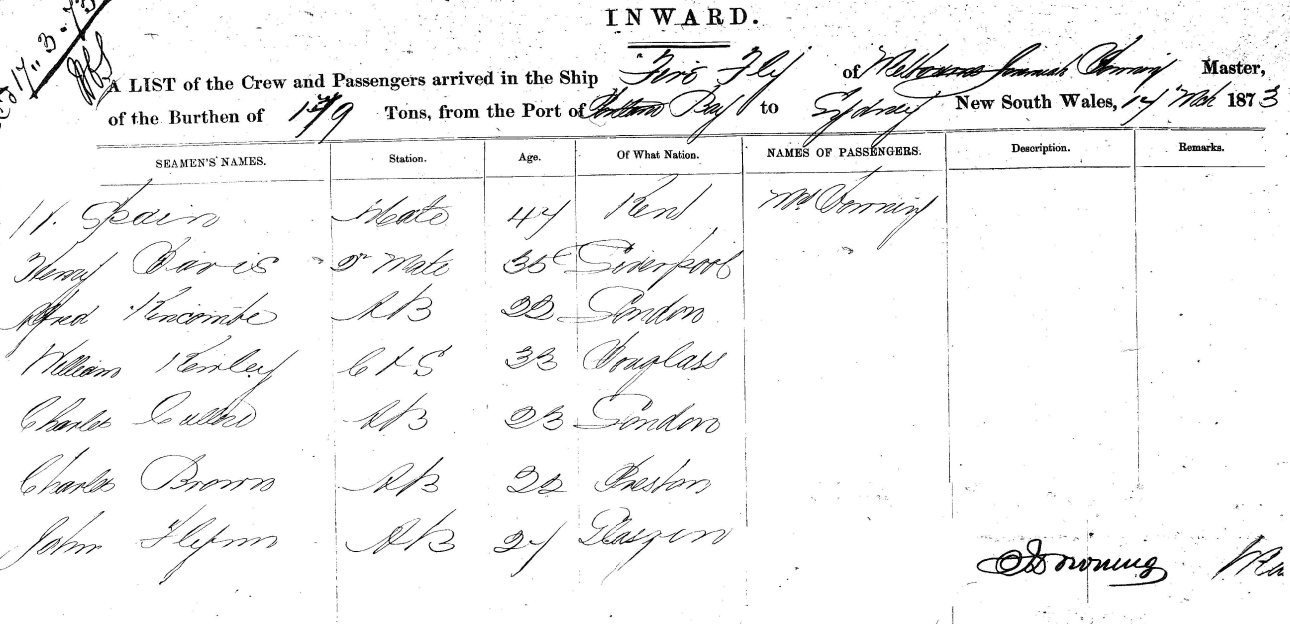 INWARD.
17" 3-73
A LIST of the Crew and Passengers arrived in the Ship Fire Fly of Melbourne Jeremiah Downing Master,
of the Burthen of Tons, from the Port of Bay to Sydney New South Wales, 17 Mch 1873
SEAMEN'S NAMES. Station. Age. Of What Nation. NAMES OF PASSENGERS. Description. Remarks.
H. Spain Mate 47 Kent Downing
Henry Davis 2n Mate 35 Liverpool
Alfred Kincombe AB 22 London
William Kinley C & S 33 Douglass
Charles AB 23 London
Charles Brown AB 22 Preston
John Flynn AB 27 Glasgow
Downing